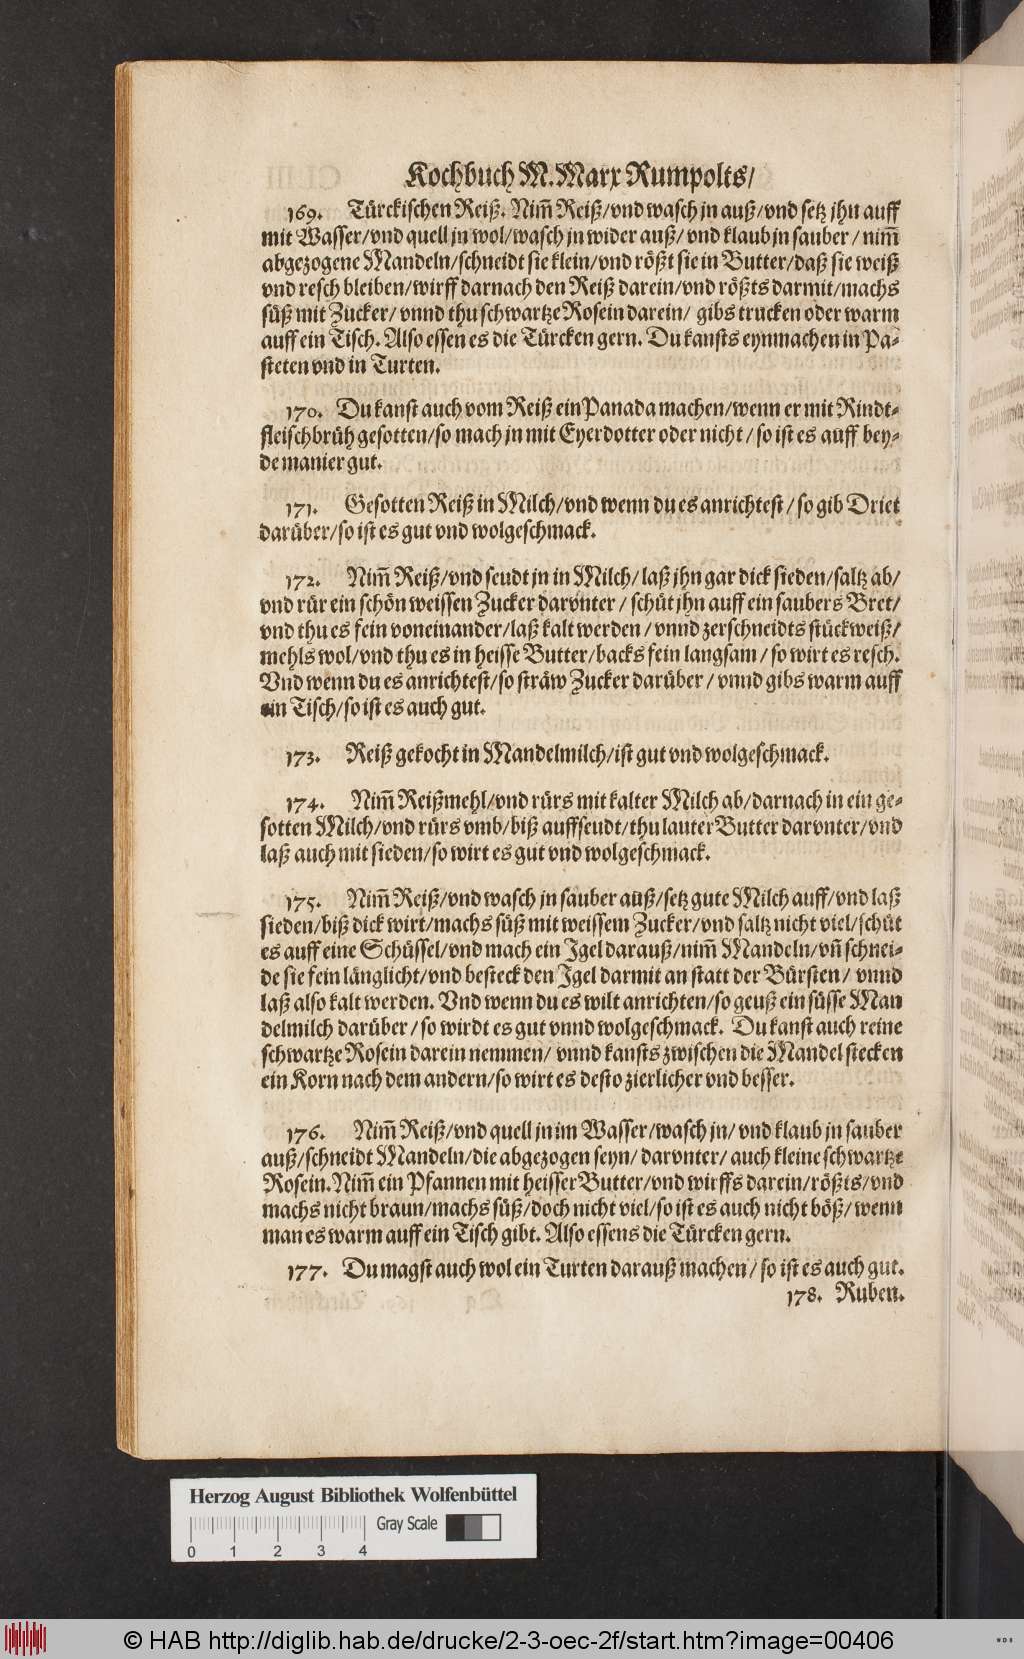 Kochbuch M. Marx Rumpolts/
169. Türckischen Reiß. Nim̃ Reiß/vnd wasch jn auß/vnd setz jhn auff
mit Wasser/vnd quell jn wol/wasch jn wider auß/ vnd klaub jn sauber / nim̃
abgezogene Mandeln/schneidt sie klein/vnd rößt sie in Butter/daß sie weiß
vnd resch bleiben/wirff darnach den Reiß darein/vnd rößts darmit/machs
süß mit Zucker/ vnnd thu schwartze Rosein darein/ gibs trucken oder warm
auff ein Tisch. Also essen es die Türcken gern. Du kansts eynmachen in Pa-
steten vnd in Turten.
170. Du kanst auch vom Reiß ein Panada machen/wenn er mit Rindt-
fleischbrüh gesotten/so mach jn mit Eyerdotter oder nicht / so ist es auff bey-
de manier gut.
171. Gesotten Reiß in Milch/vnd wenn du es anrichtest / so gib Driet
darüber/so ist es gut vnd wolgeschmack.
172. Nim̃ Reiß/vnd seudt jn in Milch/ laß jhn gar dick sieden/saltz ab/
vnd rür ein schön weissen Zucker darvnter / schüt jhn auff ein saubers Bret/
vnd thu es fein voneinander/laß kalt werden / vnnd zerschneidts stückweiß/
mehls wol/vnd thu es in heisse Butter/backs fein langsam / so wirt es resch.
Vnd wenn du es anrichtest/so sträw Zucker darüber / vnnd gibs warm auff
ein Tisch/so ist es auch gut.
173. Reiß gekocht in Mandelmilch/ist gut vnd wolgeschmack.
174. Nim̃ Reißmehl/vnd rürs mit kalter Milch ab/darnach in ein ge-
sotten Milch/vnd rürs vmb/biß auffseudt/thu lauter Butter darvnter/vnd
laß auch mit sieden/so wirt es gut vnd wolgeschmack.
175. Nim̃ Reiß/vnd wasch jn sauber auß/setz gute Milch auff/vnd laß
sieden/biß dick wirt/machs süß mit weissem Zucker/vnd saltz nicht viel/schüt
es auff eine Schüssel/vnd mach ein Igel darauß/nim̃ Mandeln/vñ schnei-
de sie fein länglicht/vnd besteck den Igel darmit an statt der Bürsten/ vnnd
laß also kalt werden. Vnd wenn du es wilt anrichten/so geuß ein süsse Man
delmilch darüber / so wirdt es gut vnnd wolgeschmack. Du kanst auch reine
schwartze Rosein darein nemmen/ vnnd kansts zwischen die Mandel stecken
ein Korn nach dem andern/so wirt es desto zierlicher vnd besser.
176. Nim̃ Reiß/vnd quell jn im Wasser/wasch jn/ vnd klaub jn sauber
auß/schneidt Mandeln/die abgezogen seyn/ darvnter/ auch kleine schwartze
Rosein. Nim̃ ein Pfannen mit heisser Butter/vnd wirffs darein/rößts/vnd
machs nicht braun/machs süß/doch nicht viel/so ist es auch nicht böß/ wenn
man es warm auff ein Tisch gibt. Also essens die Türcken gern.
177. Du magst auch wol ein Turten darauß machen / so ist es auch gut.
178. Ruben.
Herzog August Bibliothek Wolfenbüttel
Gray Scale
0 1 2 3 4
© HAB http://diglib.hab.de/drucke/2-3-oec-2f/start.htm?image=00406